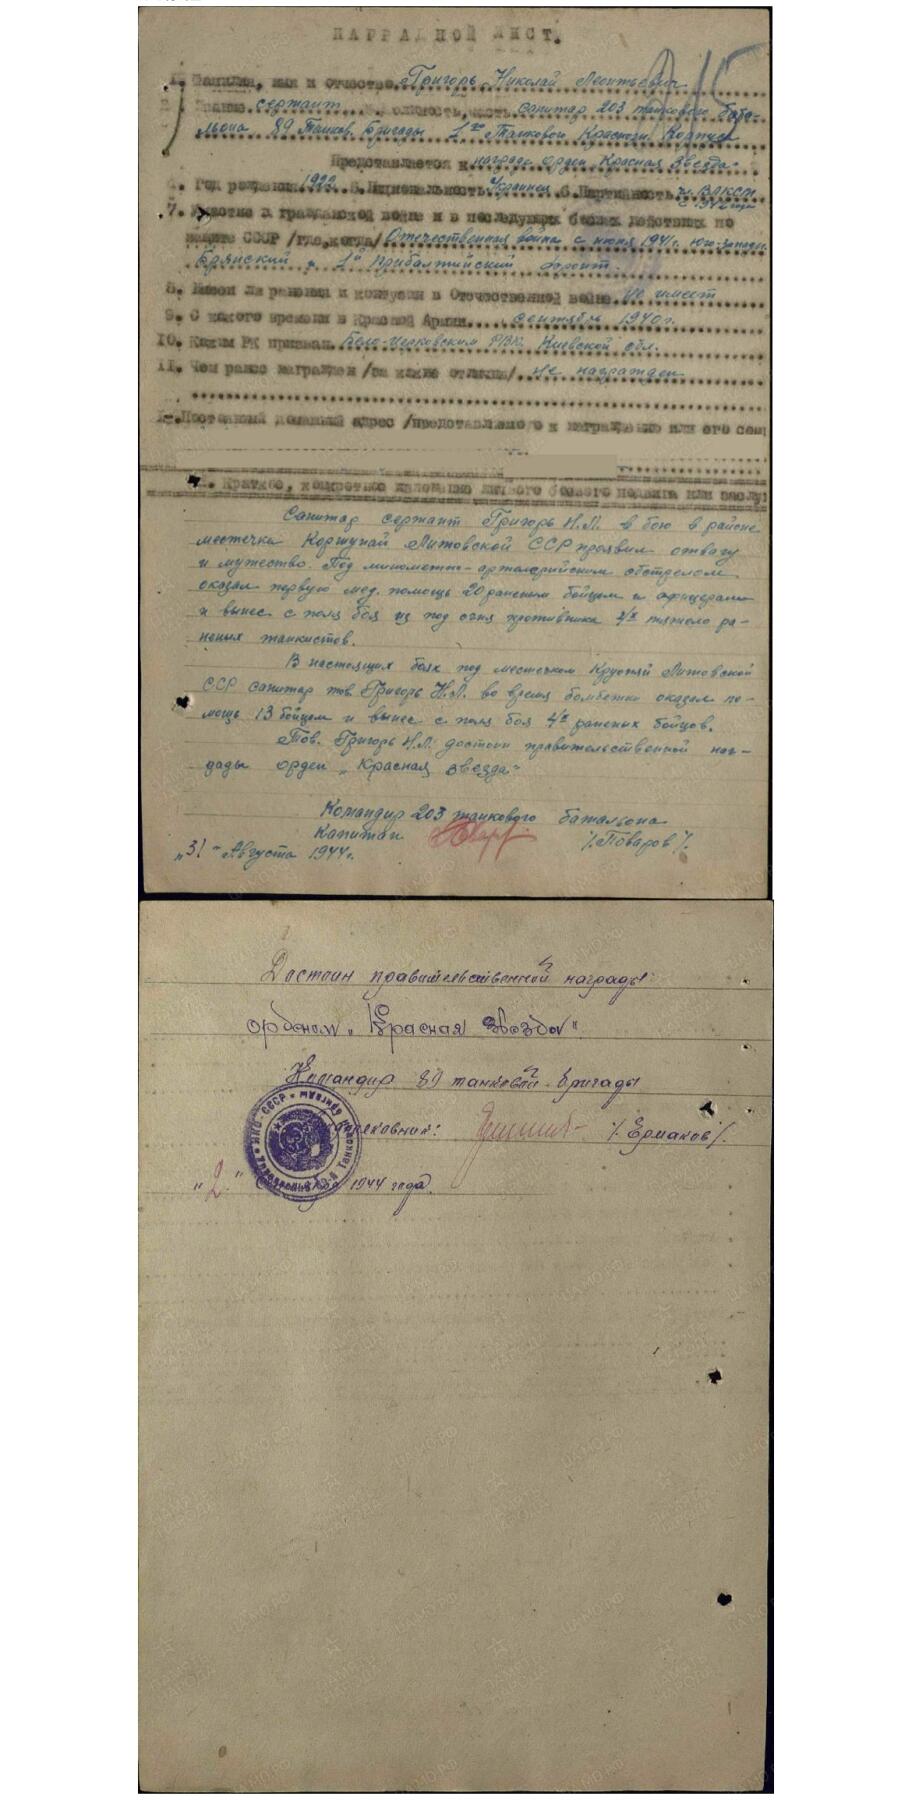 НАГРАДНОЙ ЛИСТ.
1. Фамилия, имя и отчество Григорь Николай Леонтьевич
2. Звание сержант 3. Должность, часть санитар 203 танковой бата-
льона 89 Танков. Бригады 1го Танковой Краснозн. Корпуса
Представляется к награде орден Красная Звезда
4. Год рождения 1922 5. Национальность Украинец 6. Партийность чл. ВЛКСМ
с 1942 года
7. Участие в гражданской войне и в последующих боевых действиях по
защите СССР /где, когда/ Отечественная война с июня 1941г. Юго-Западн.
Брянский и 1й Прибалтийский фронт.
8. Имеет ли ранения и контузии в Отечественной войне. Не имеет
9. С какого времени в Красной Армии. сентябрь 1940г.
10. Каким РК призван. Бело-Церковским РВК. Киевской обл.
11. Чем ранее награжден /за какие отличия/. не награжден
Постоянный домашний адрес /представляемого к награждению или его сем
1. Краткое, конкретное изложение личного боевого подвига или заслу
Санитар сержант Григорь Н.Л. в бою в районе
местечка Коршунай Литовской ССР проявил отвагу
и мужество. Под минометно-артиллерийским обстрелом
оказал первую мед. помощь 20 раненым бойцам и офицерам
и вынес с поля боя из под огня противника 4х тяжело ра-
неных танкистов.
В настоящих боях под местечком Круопяй Литовской
ССР санитар тов. Григорь Н.Л. во время бомбежки оказал по-
мощь 13 бойцам и вынес с поля боя 4х раненых бойцов.
Тов. Григорь Н.Л. достоин правительственной наг-
рады орден „Красная Звезда"
Командир 203 танкового батальона
Капитан /Поваров/.
„31" Августа 1944г.
Достоин правительственной награды:
орденом „Красная Звезда".
Командир 89 танковой бригады
Полковник: /Ермаков/.
„2" 1944 года.